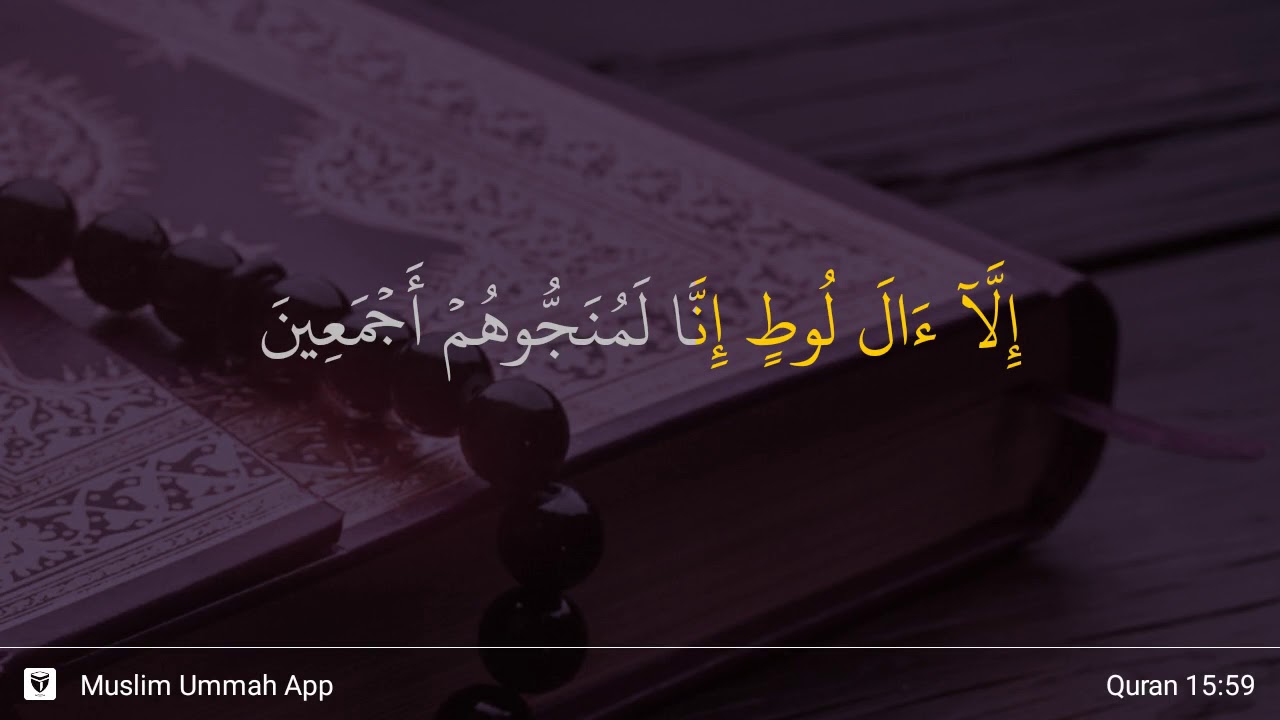 إِلَّآ ءَالَ لُوطٍ إِنَّا لَمُنَجُّوهُمْ أَجْمَعِينَ
Muslim Ummah App
Quran 15:59